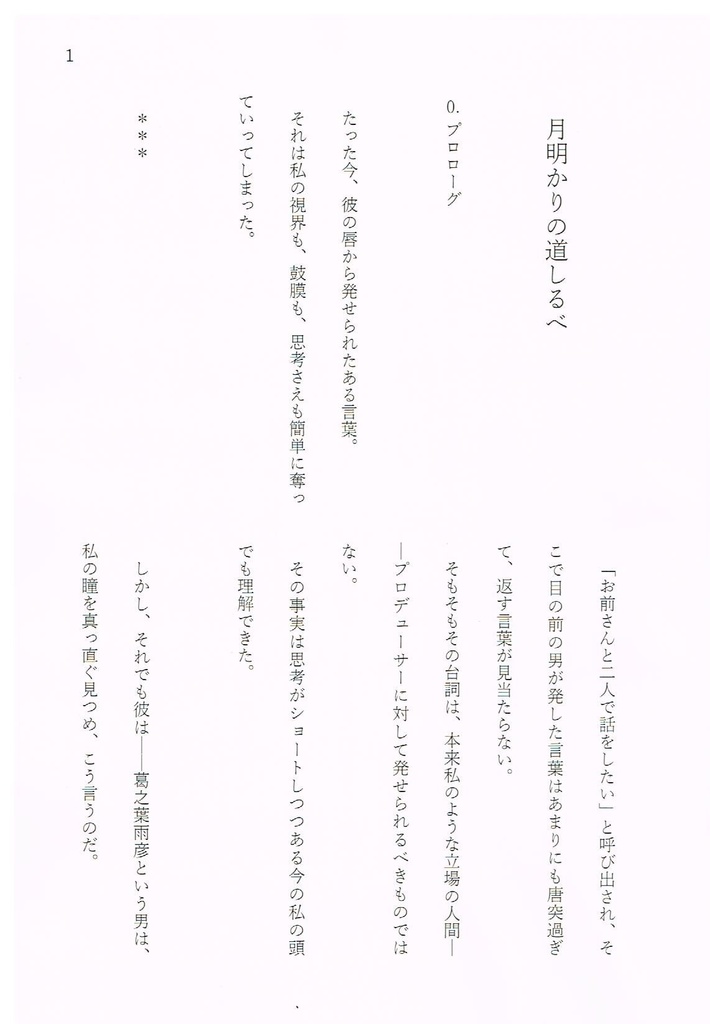 1
月明かりの道しるべ
0. プロローグ
たった今、彼の唇から発せられたある言葉。
それは私の視界も、鼓膜も、思考さえも簡単に奪っ
ていってしまった。
***
「お前さんと二人で話をしたい」と呼び出され、そ
こで目の前の男が発した言葉はあまりにも唐突過ぎ
て、返す言葉が見当たらない。
そもそもその台詞は、本来私のような立場の人間―
―プロデューサーに対して発せられるべきものでは
ない。
その事実は思考がショートしつつある今の私の頭
でも理解できた。
しかし、それでも彼は――葛之葉雨彦という男は、
私の瞳を真っ直ぐ見つめ、こう言うのだ。